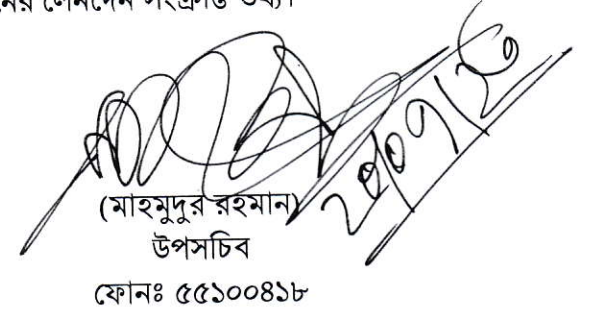 লেনদেন সংক্রান্ত তথ্য।
(মাহমুদুর রহমান)
উপসচিব
ফোনঃ ৫৫১০০৪১৮